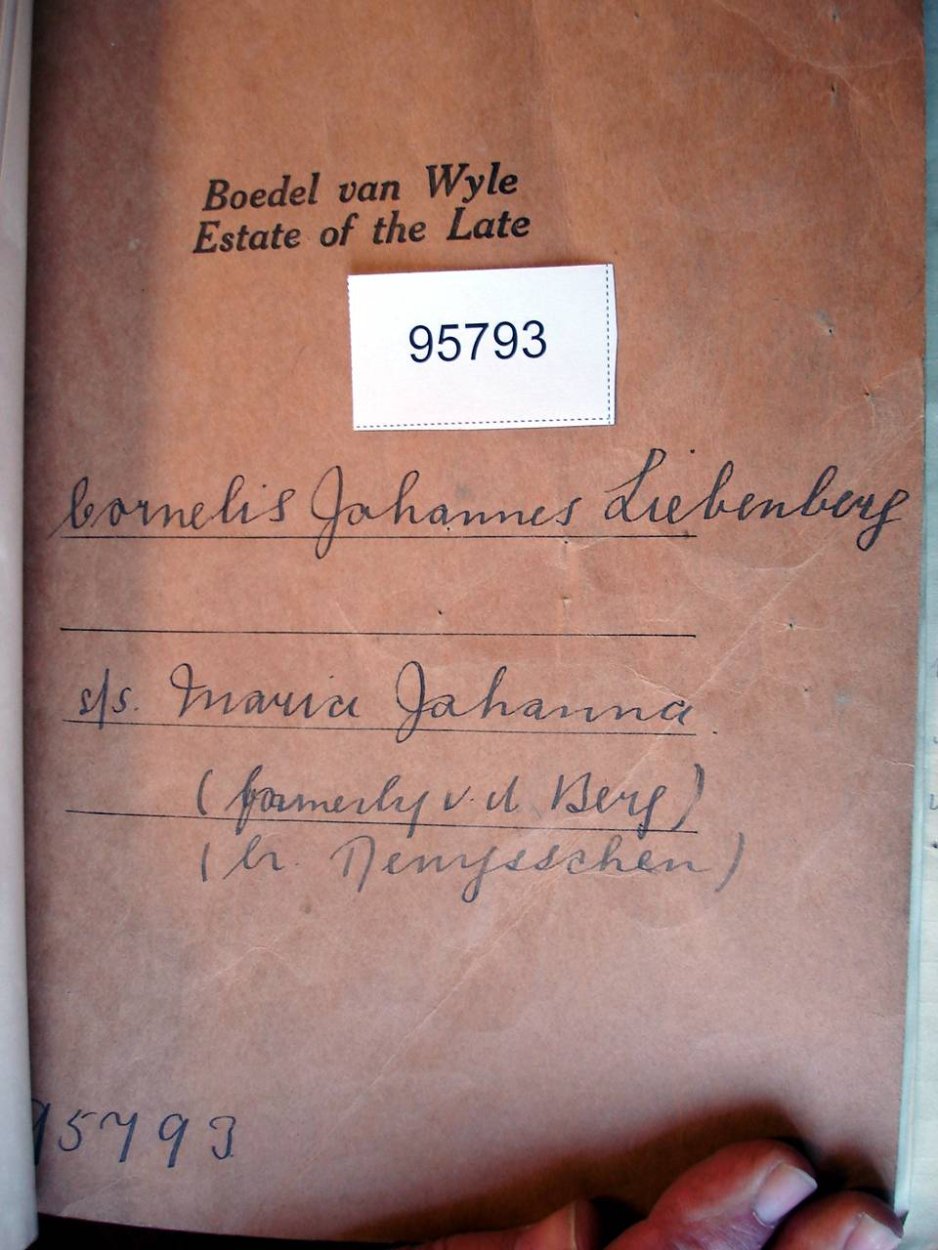 Boedel van Wyle
Estate of the Late
95793
Cornelis Johannes Liebenberg
s/s. Maria Johanna
(formerly v. d. Berg)
(br. Nenysschen)
95793